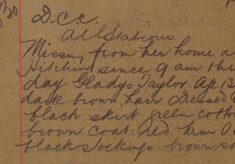 D.C.C.
All Stations
Missing from her home a
Hitchin since 9 am the
day Gladys Taylor Age 13
dark brown hair dressed
black skirt green cotton
brown coat Red Tam O
black stockings brown s